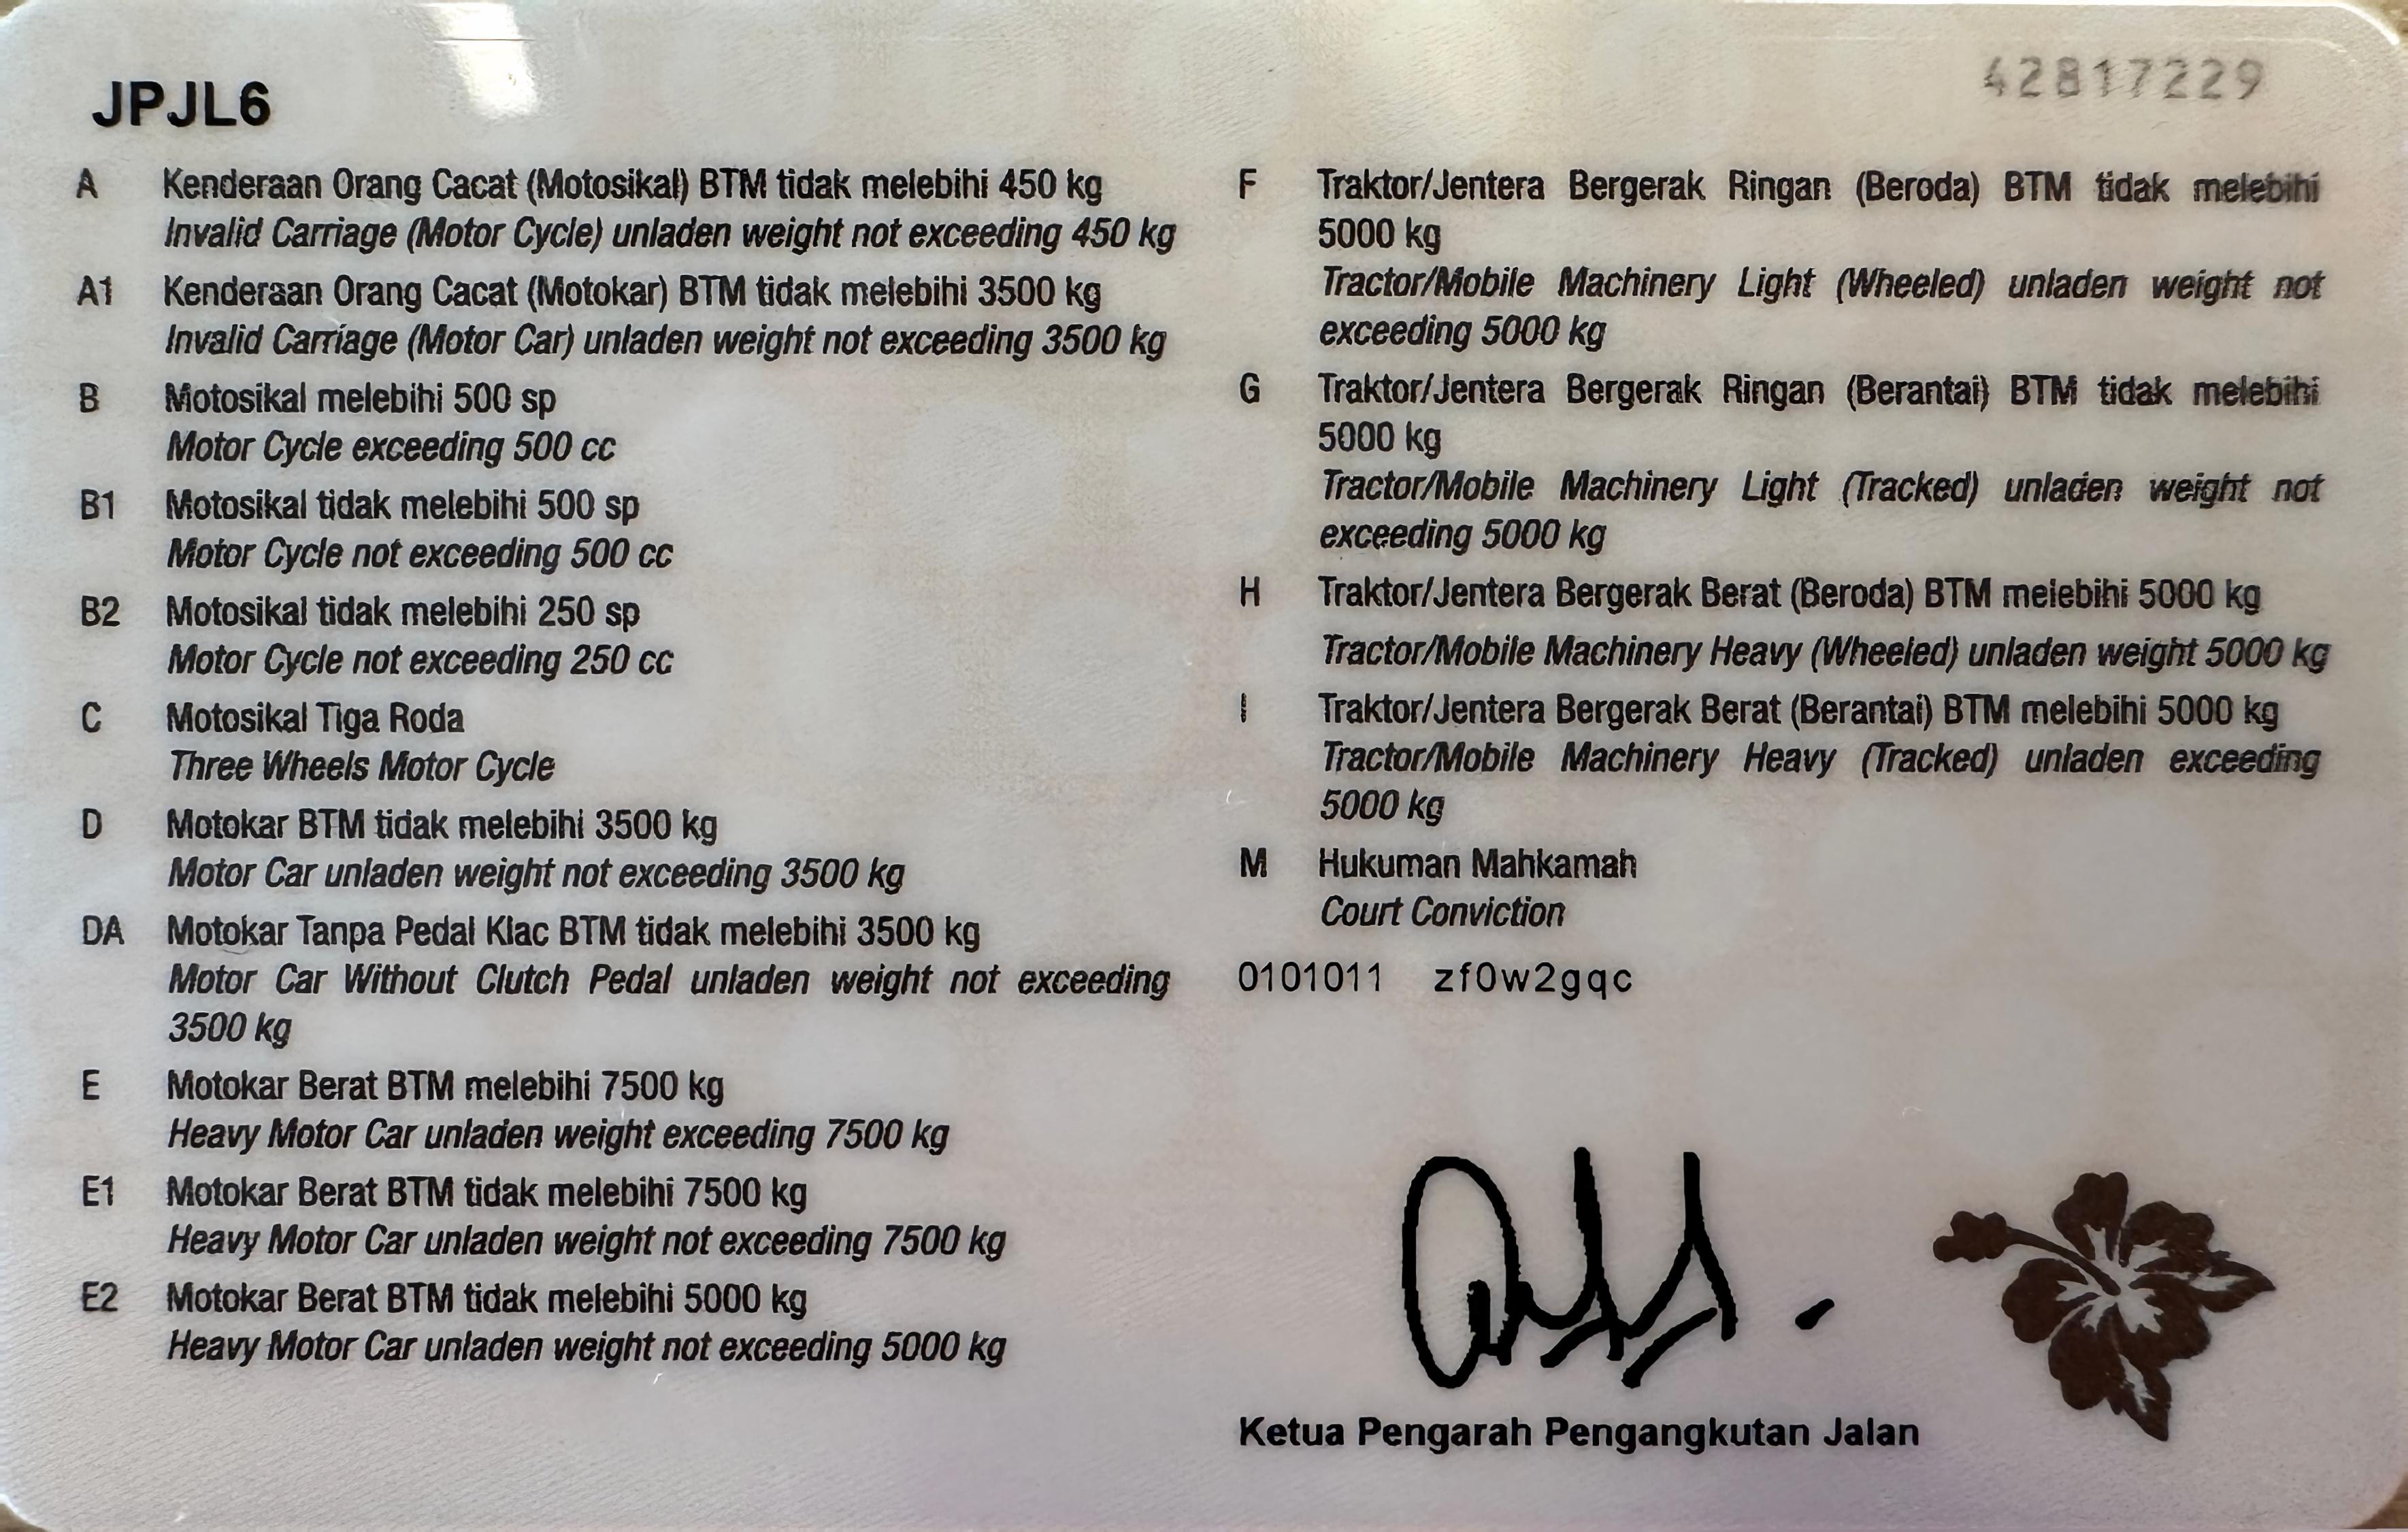 JPJL6
42817229
A Kenderaan Orang Cacat (Motosikal) BTM tidak melebihi 450 kg
Invalid Carriage (Motor Cycle) unladen weight not exceeding 450 kg
A1 Kenderaan Orang Cacat (Motokar) BTM tidak melebihi 3500 kg
Invalid Carriage (Motor Car) unladen weight not exceeding 3500 kg
B Motosikal melebihi 500 sp
Motor Cycle exceeding 500 cc
B1 Motosikal tidak melebihi 500 sp
Motor Cycle not exceeding 500 cc
B2 Motosikal tidak melebihi 250 sp
Motor Cycle not exceeding 250 cc
C Motosikal Tiga Roda
Three Wheels Motor Cycle
D Motokar BTM tidak melebihi 3500 kg
Motor Car unladen weight not exceeding 3500 kg
DA Motokar Tanpa Pedal Klac BTM tidak melebihi 3500 kg
Motor Car Without Clutch Pedal unladen weight not exceeding
3500 kg
E Motokar Berat BTM melebihi 7500 kg
Heavy Motor Car unladen weight exceeding 7500 kg
E1 Motokar Berat BTM tidak melebihi 7500 kg
Heavy Motor Car unladen weight not exceeding 7500 kg
E2 Motokar Berat BTM tidak melebihi 5000 kg
Heavy Motor Car unladen weight not exceeding 5000 kg
F Traktor/Jentera Bergerak Ringan (Beroda) BTM tidak melebihi
5000 kg
Tractor/Mobile Machinery Light (Wheeled) unladen weight not
exceeding 5000 kg
G Traktor/Jentera Bergerak Ringan (Berantai) BTM tidak melebihi
5000 kg
Tractor/Mobile Machinery Light (Tracked) unladen weight not
exceeding 5000 kg
H Traktor/Jentera Bergerak Berat (Beroda) BTM melebihi 5000 kg
Tractor/Mobile Machinery Heavy (Wheeled) unladen weight 5000 kg
I Traktor/Jentera Bergerak Berat (Berantai) BTM melebihi 5000 kg
Tractor/Mobile Machinery Heavy (Tracked) unladen exceeding
5000 kg
M Hukuman Mahkamah
Court Conviction
0101011 zf0w2gqc
Ketua Pengarah Pengangkutan Jalan